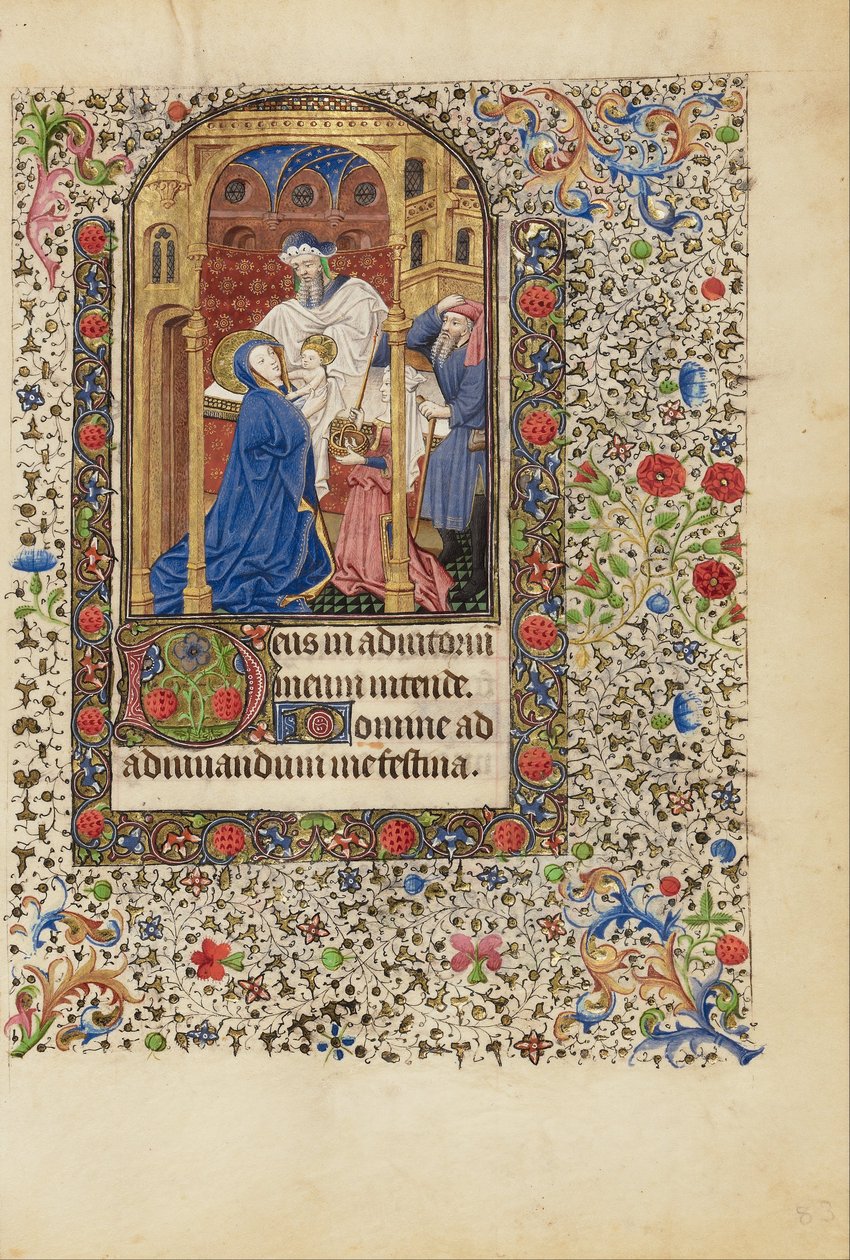 Deus in adiutoriū
meum intende.
Domine ad
adiuuandum me festina.
83